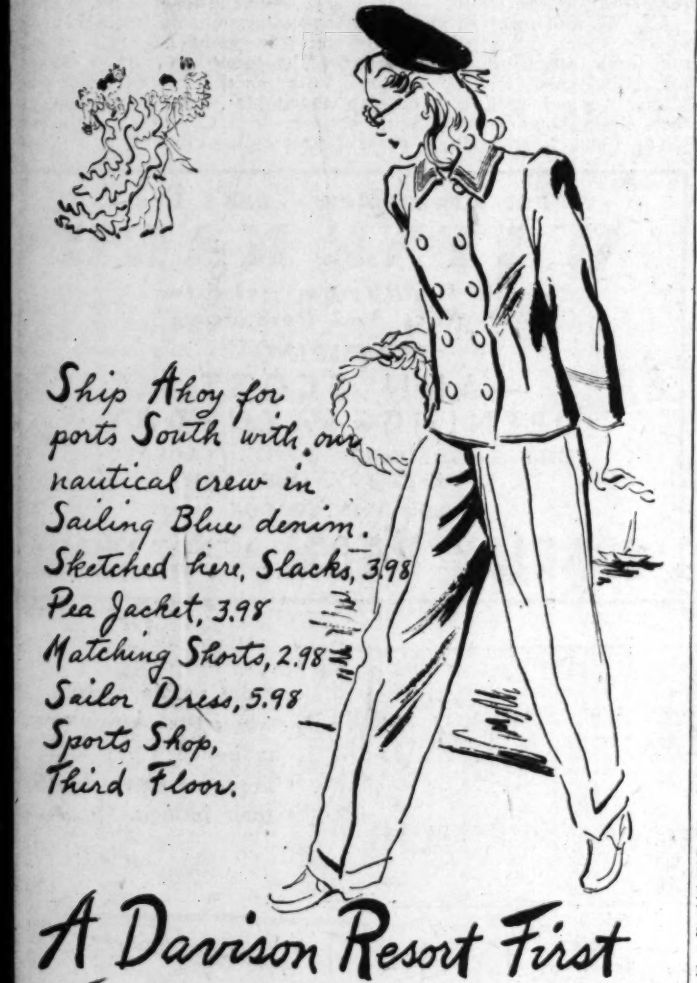 Ship Ahoy for
ports South with our
nautical crew in
Sailing Blue denim.
Sketched here, Slacks, 3.98
Pea Jacket, 3.98
Matching Shorts, 2.98
Sailor Dress, 5.98
Sports Shop,
Third Floor.
A Davison Resort First